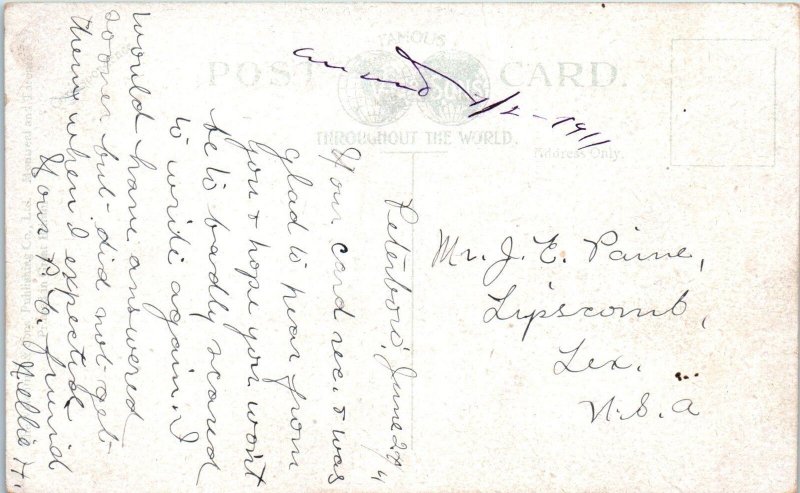 FAMOUS
POST CARD.
THROUGHOUT THE WORLD.
Address Only.
1/2-1911
Peterboro, June 24
Your card rec. & was
glad to hear from
you & hope you won't
be to badly scared
to write again. I
would have answered
sooner but did not get
them when I expected
Your P. C. friend
Nellie H.
Mr. J. E. Paine,
Lipscomb,
Tex.
U.S.A